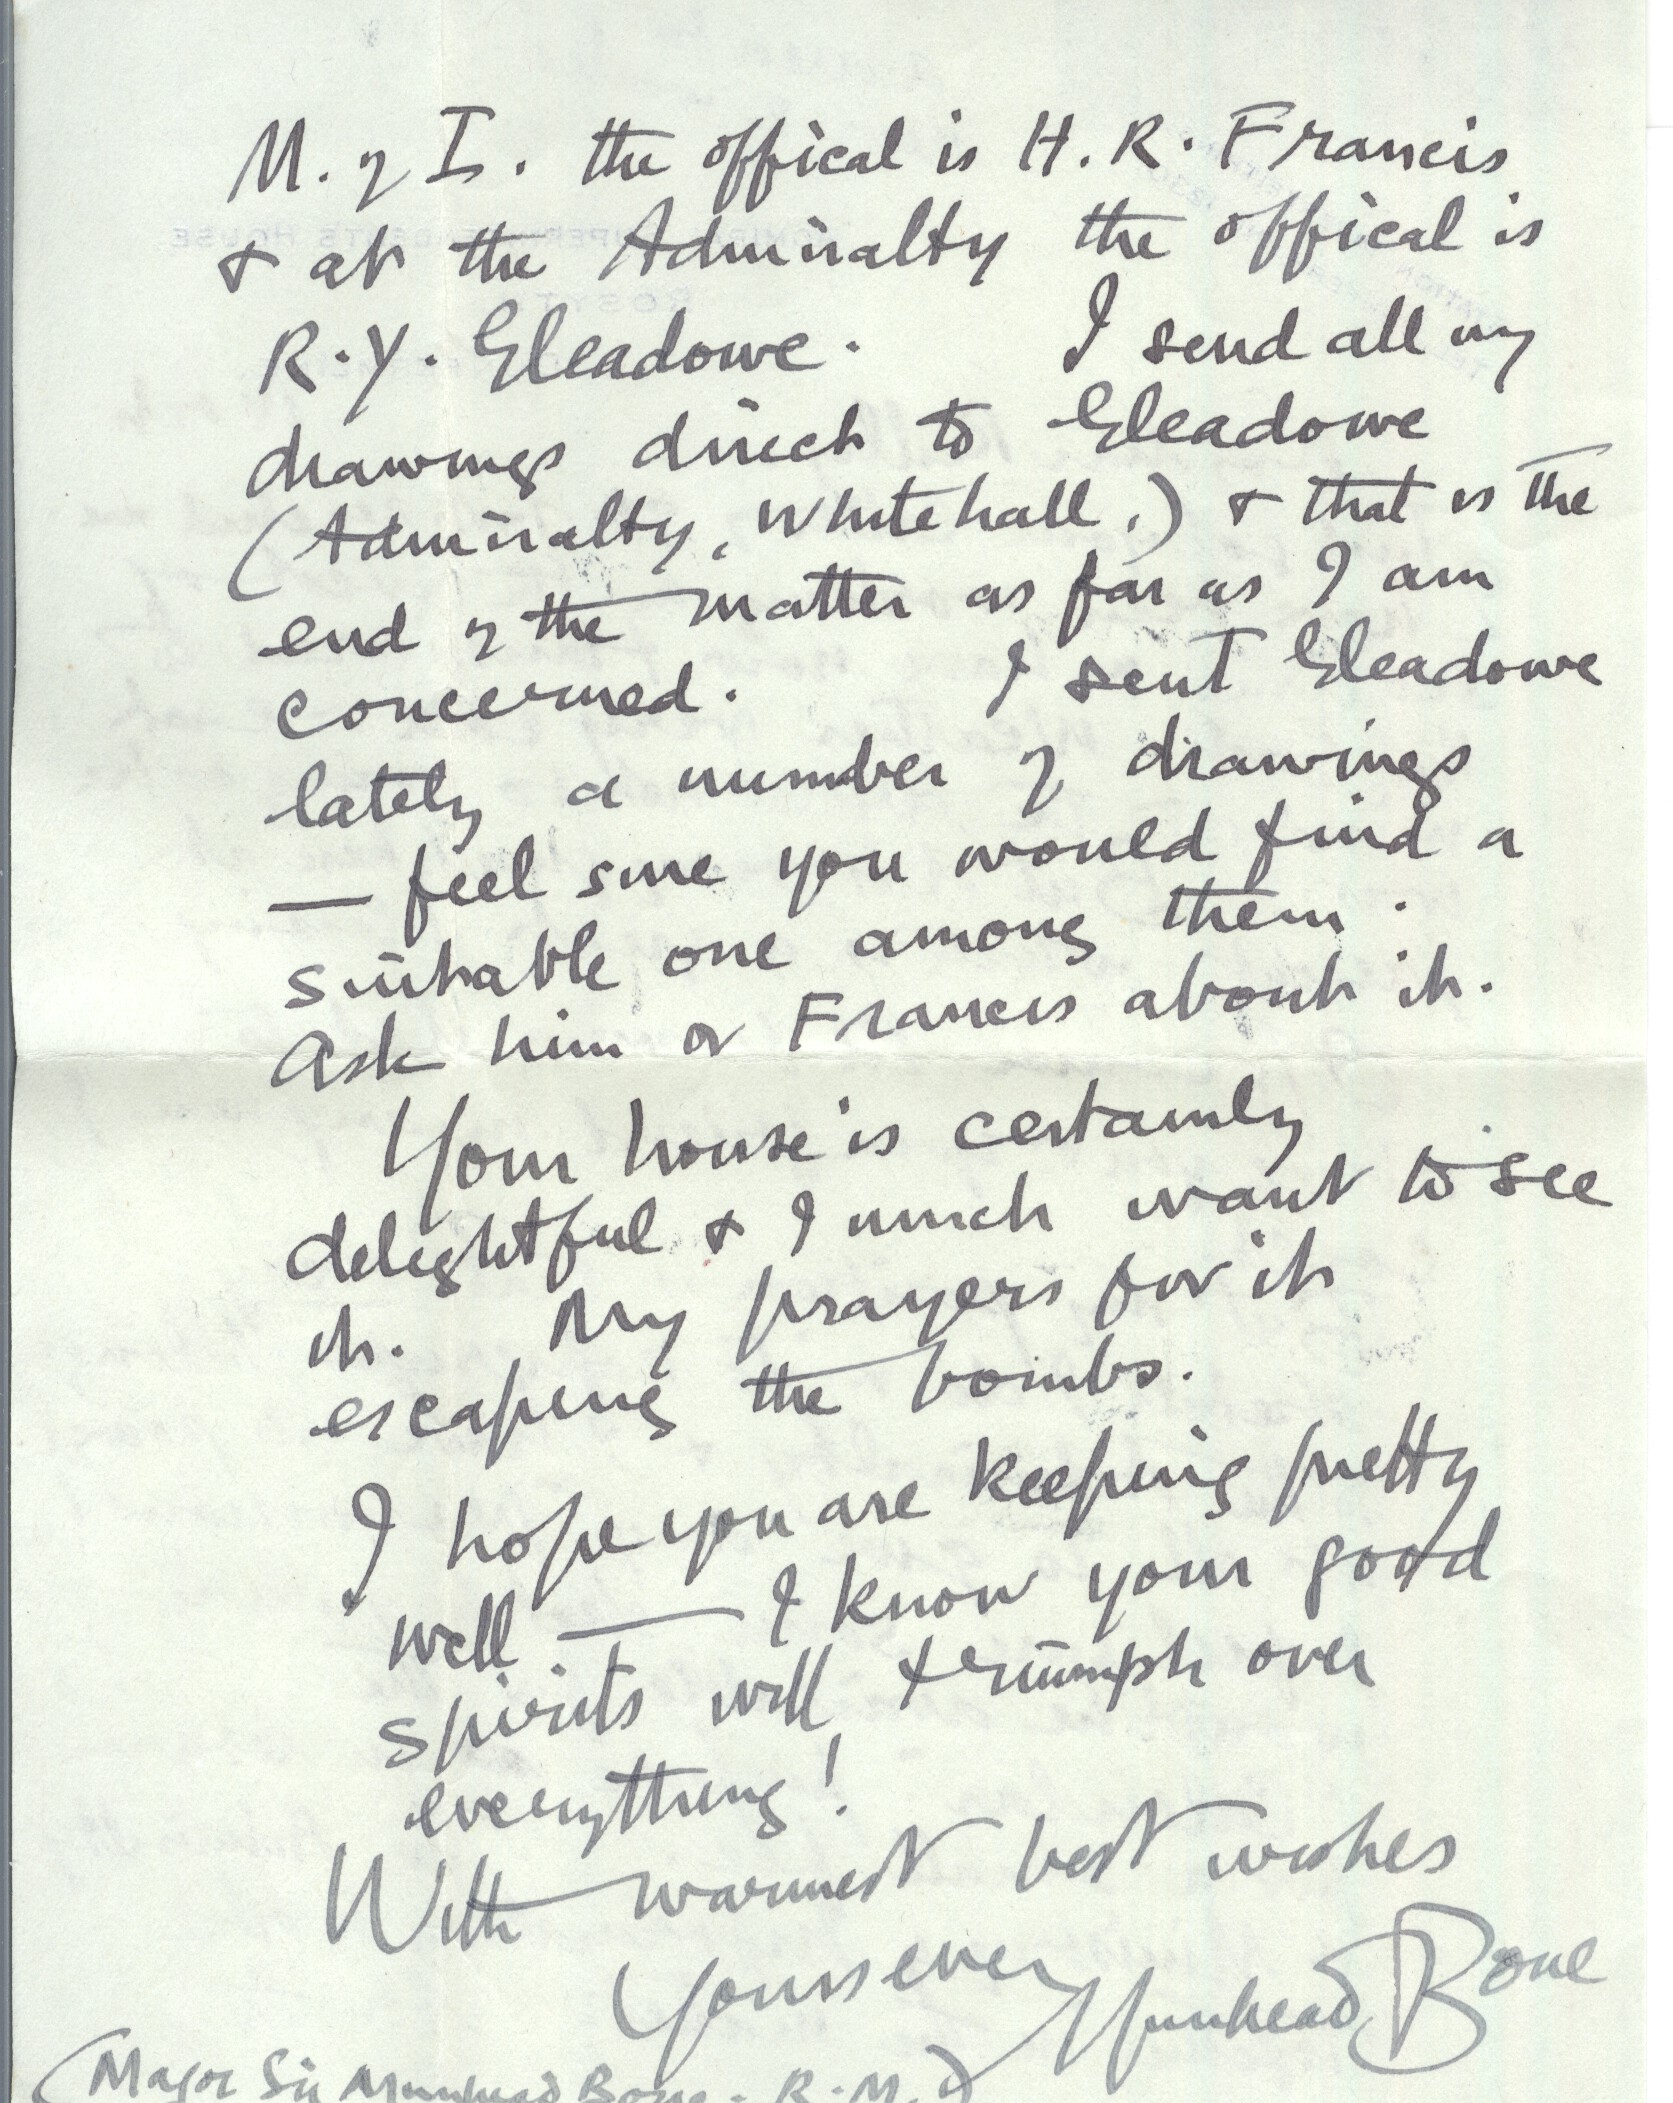 M. of I. the offical is H. R. Francis
& at the Admiralty the offical is
R. Y. Gleadowe. I send all my
drawings direct to Gleadowe
(Admiralty, Whitehall.) & that is the
end of the matter as far as I am
concerned. I sent Gleadowe
lately a number of drawings
— feel sure you would find a
suitable one among them.
Ask him or Francis about it.
Your house is certainly
delightful & I much want to see
it. My prayers for it
escaping the bombs.
I hope you are keeping pretty
well — I know your good
spirits will triumph over
everything!
With warmest best wishes
Yours ever Muirhead Bone
(Major Sir Muirhead Bone. R.M.)